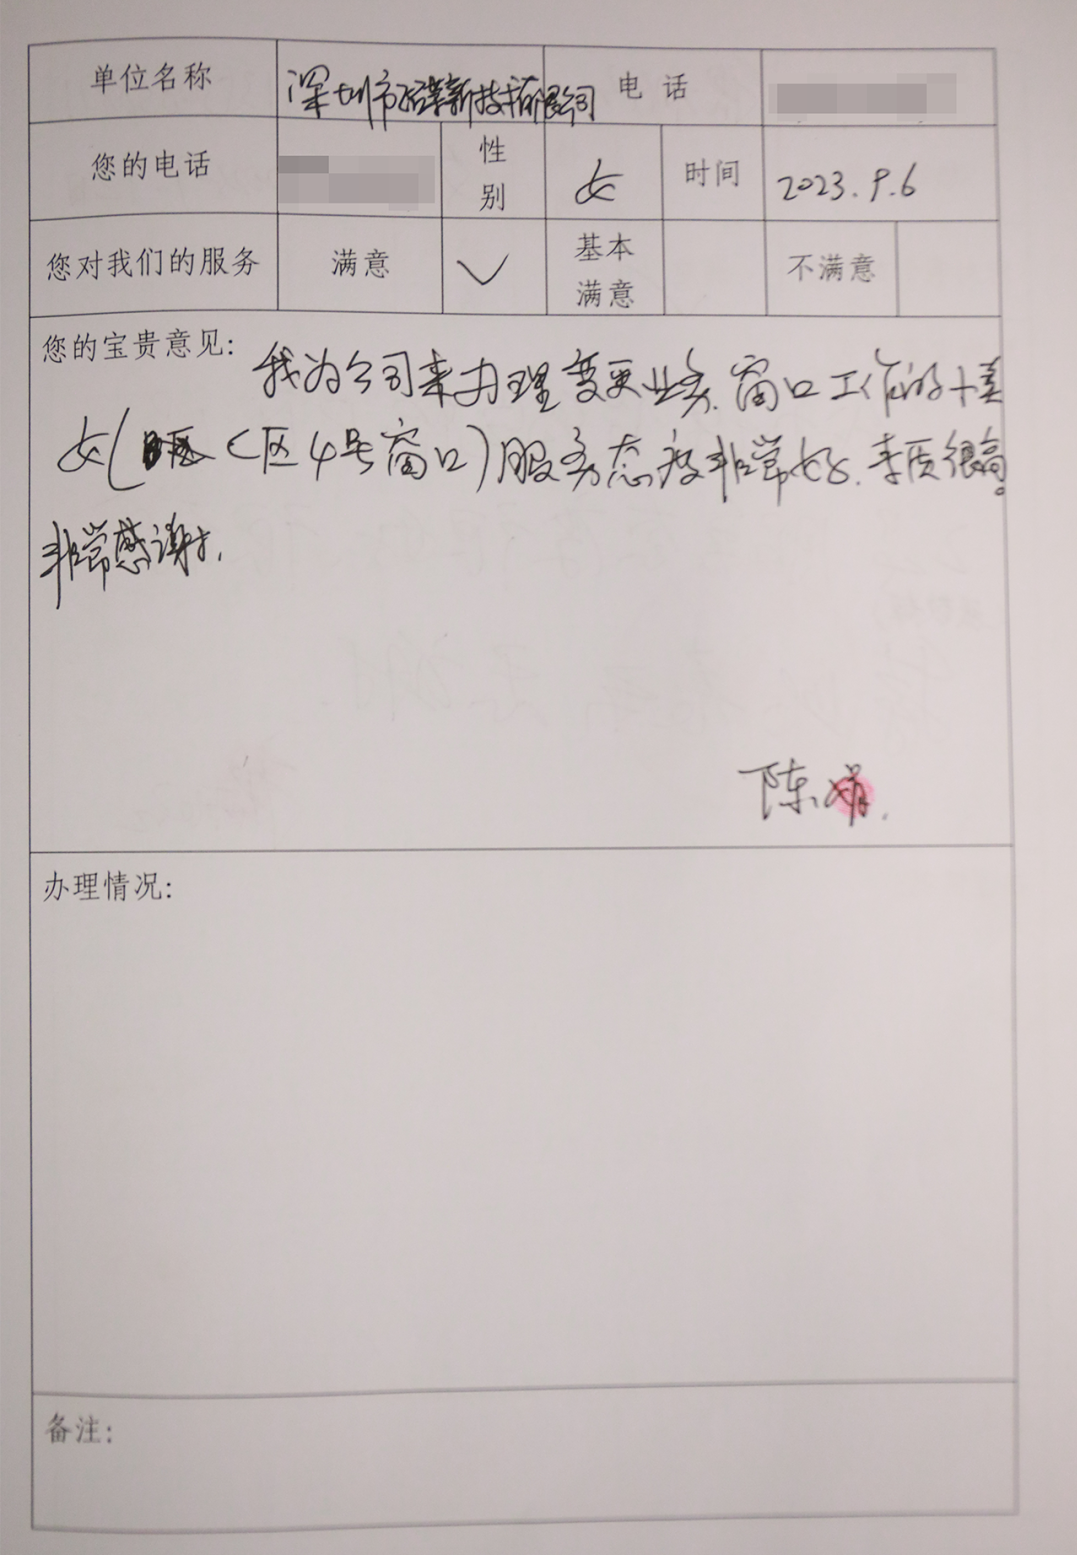 单位名称 深圳市 新技术有限公司 电话
您的电话 性别 女 时间 2023.9.6
您对我们的服务 满意 ✓ 基本满意 不满意
您的宝贵意见: 我为公司来办理变更业务.窗口工作的小美
女( C区4号窗口)服务态度非常好.素质很高。
非常感谢.
陈娟.
办理情况:
备注: